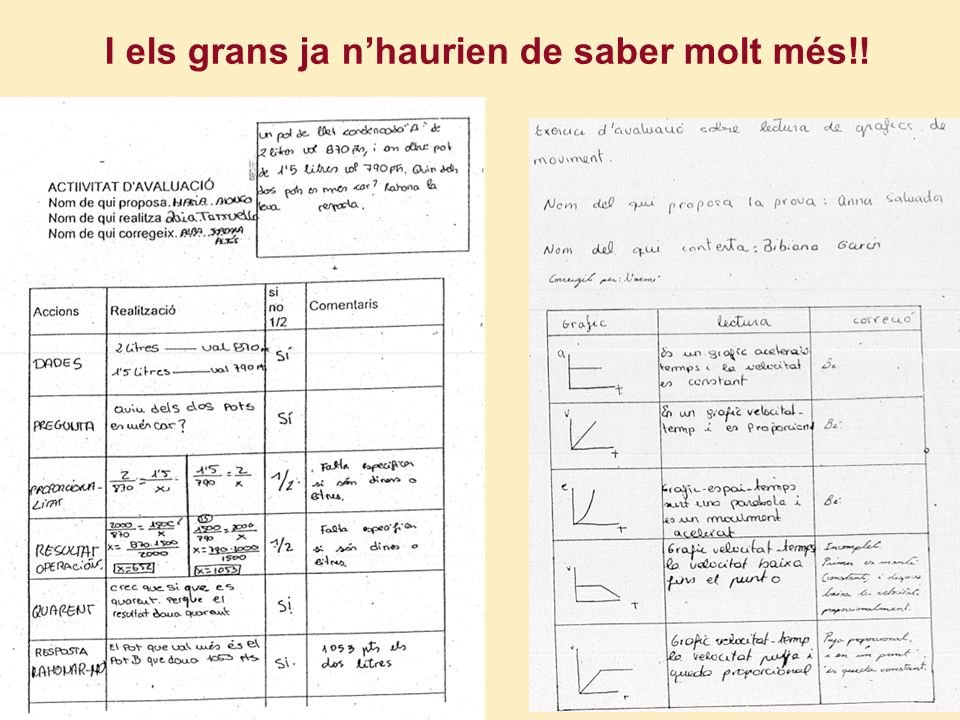 I els grans ja n'haurien de saber molt més!!
un pot de llet condençada "A" de
2 litros val 870 pts, i an altre pot
de 1'5 litres val 790 pts. Quin dels
dos pots es mes car? Raona la
teva resposta.
ACTIIVITAT D'AVALUACIÓ
Nom de qui proposa. MARIA ALONSO
Nom de qui realitza Laia Tarruella
Nom de qui corregeix. ALBA JORDNA
Accions Realització si no 1/2 Comentaris
DADES
2 litres — val 870 pts
1'5 litres — val 790 pts
Sí
PREGUNTA
Quin dels dos pots
es més car?
Sí
PROPORCIONA-
LITAT
2/870 = 1'5/x
1'5/790 = 2/x
1/2
. Falta especificar
si són diners o
litres.
RESULTAT
OPERACIÓNS
2000/870 = 1500/x
x = 870·1500/2000
x=652
1500/790 = 2000/x
x = 790·2000/1500
x=1053
1/2
Falta especificar
si són diners o
litres.
QUARENT
crec que si que es
quarent. Perque el
resultat dona quarent
Si
RESPOSTA
RAONAR-HO
El Pot que val més és el
Pot B que dona 1053 pts
Si.
1053 pts els
dos litres
Exercici d'avaluació sobre lectura de grafics de
moviment.
Nom del qui proposa la prova: Anna Salvador
Nom del qui contesta: Bibiana Garcin
Corregit per: Noemi
Grafic lectura correció
a T
Es un grafic acelerais
temps i la velocitat
es constant
Be
v T
Es un grafic velocitat-
temp i es Proporciona
Be.
e T
Grafic-espai-temps
surt una parabola i
es un moviment
accelerat
Be.
v T
Grafic velocitat-temps
la velocitat baixa
fins el punt o
Incomplet.
Primer es manté
Constant, i després
baixa la velocitat
proporcionalment.
v T
Grafic velocitat-temp
la velocitat putja i
queda proporcional
Puja proporcional,
i en un punt
es queda constant.